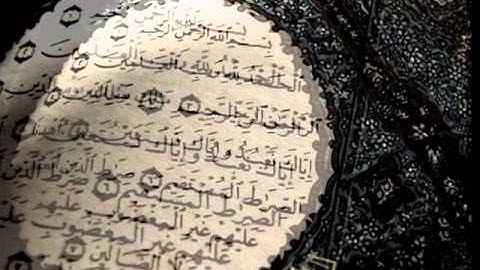 بسم الله الرحمن الرحيم
الحمد لله رب العالمين
الرحمن الرحيم ملك يوم الدين
إياك نعبد وإياك نستعين اهدنا
الصراط المستقيم صراط الذين
عليهم غير المغضوب عليهم
الضالين